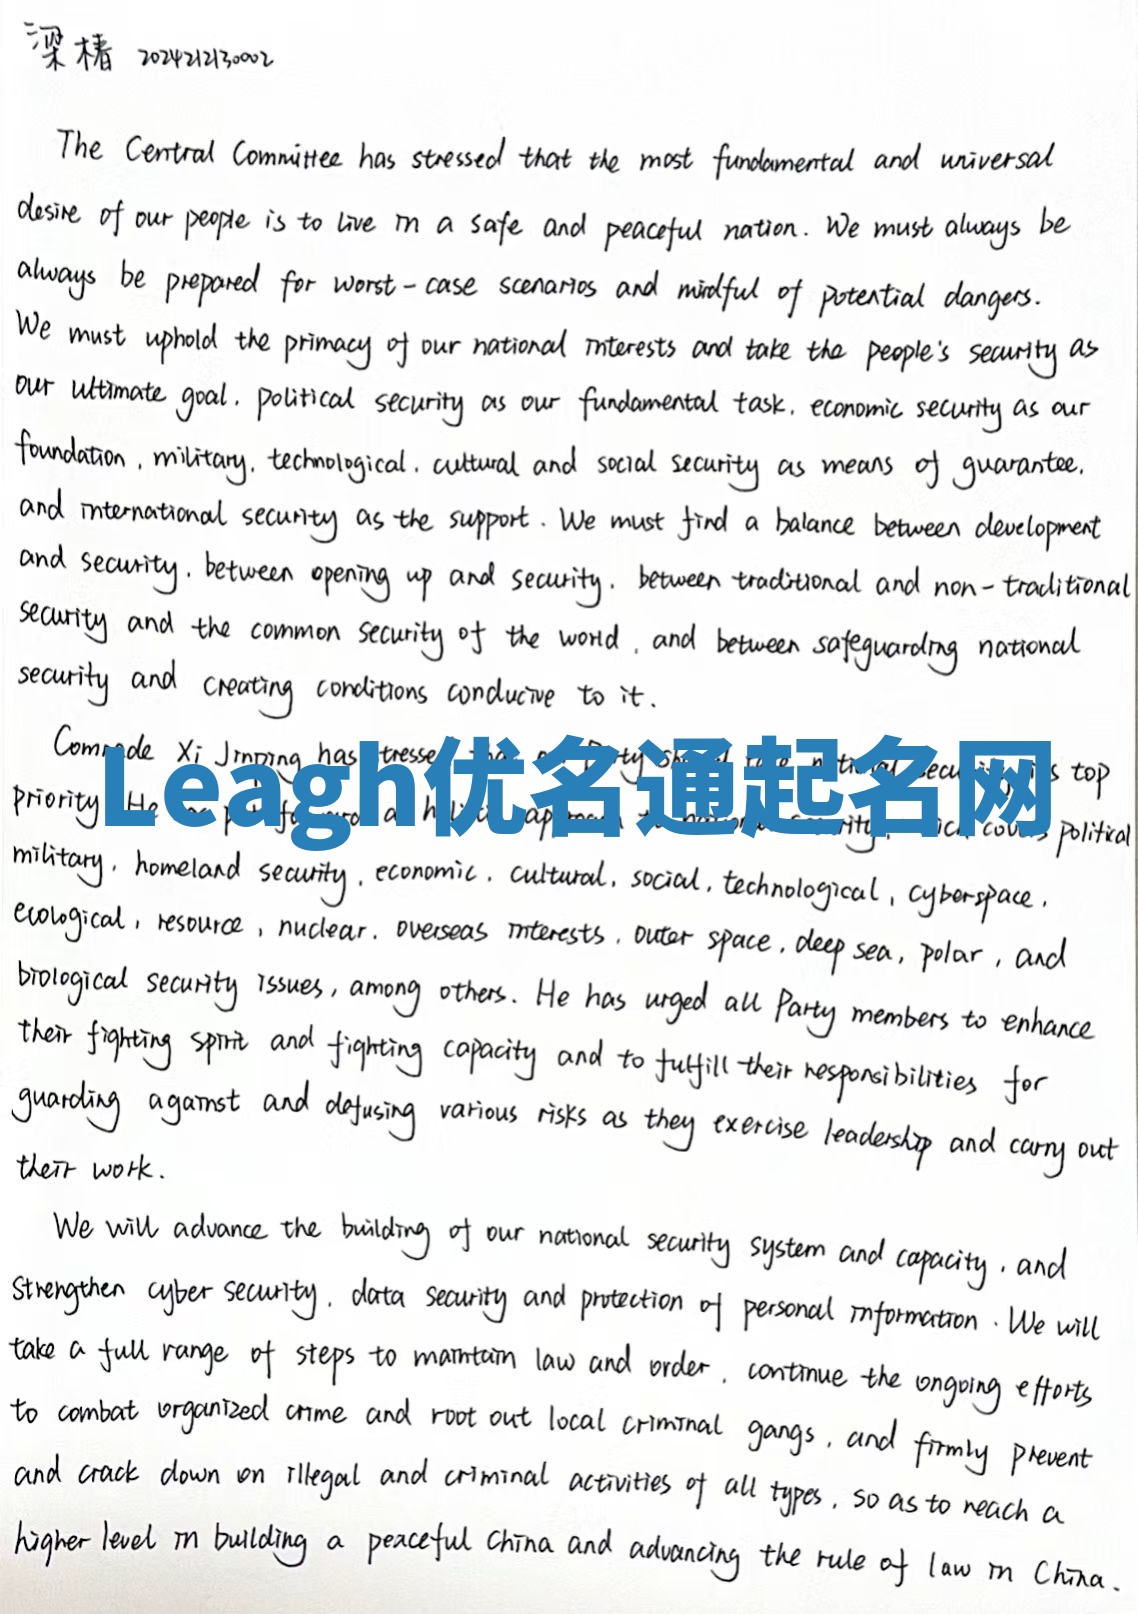 梁椿 2024212130002
The Central Committee has stressed that the most fundamental and universal
desire of our people is to live in a safe and peaceful nation. We must always be
always be prepared for worst-case scenarios and mindful of potential dangers.
We must uphold the primacy of our national interests and take the people's security as
our ultimate goal, political security as our fundamental task, economic security as our
foundation, military, technological, cultural and social security as means of guarantee,
and international security as the support. We must find a balance between development
and security, between opening up and security, between traditional and non-traditional
security and the common security of the world, and between safeguarding national
security and creating conditions conducive to it.
Comrade Xi Jinping has stressed Party national security top
Leagh优名通起名网
priority He a covers political
military, homeland security, economic, cultural, social, technological, cyberspace,
ecological, resource, nuclear, overseas interests, outer space, deep sea, polar, and
biological security issues, among others. He has urged all Party members to enhance
their fighting spirit and fighting capacity and to fulfill their responsibilities for
guarding against and defusing various risks as they exercise leadership and carry out
their work.
We will advance the building of our national security system and capacity, and
strengthen cyber security, data security and protection of personal information. We will
take a full range of steps to maintain law and order, continue the ongoing efforts
to combat organized crime and root out local criminal gangs, and firmly prevent
and crack down on illegal and criminal activities of all types, so as to reach a
higher level in building a peaceful China and advancing the rule of law in China.